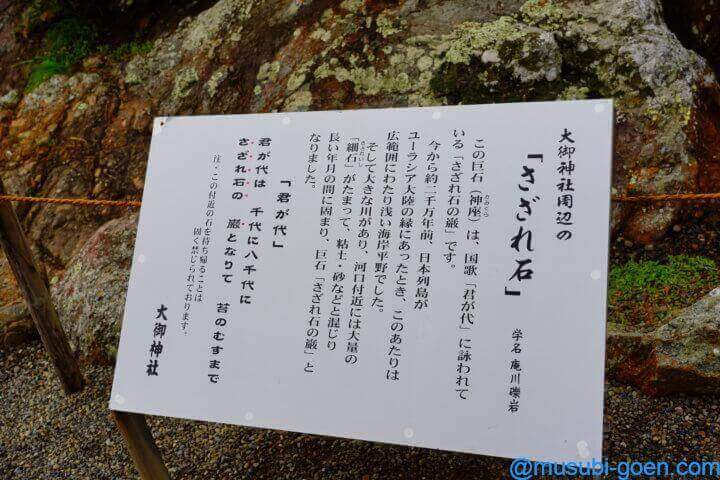 大御神社周辺の
「さざれ石」
学名 庵川礫岩
この巨石（神座）は、国歌「君が代」に詠われて
かみくら
いる「さざれ石の巌」です。
今から約二千万年前、日本列島が
ユーラシア大陸の縁にあったとき、このあたりは
広範囲にわたり浅い海岸平野でした。
そして大きな川があり、河口付近には大量の
「細石」がたまって、粘土・砂などと混じり
さざれいし
長い年月の間に固まり、巨石「さざれ石の巌」と
なりました。
「君が代」
君が代は 千代に八千代に
さざれ石の 巌となりて 苔のむすまで
注・この付近の石を持ち帰ることは
固く禁じられております。
大御神社
@musubi-goen.com